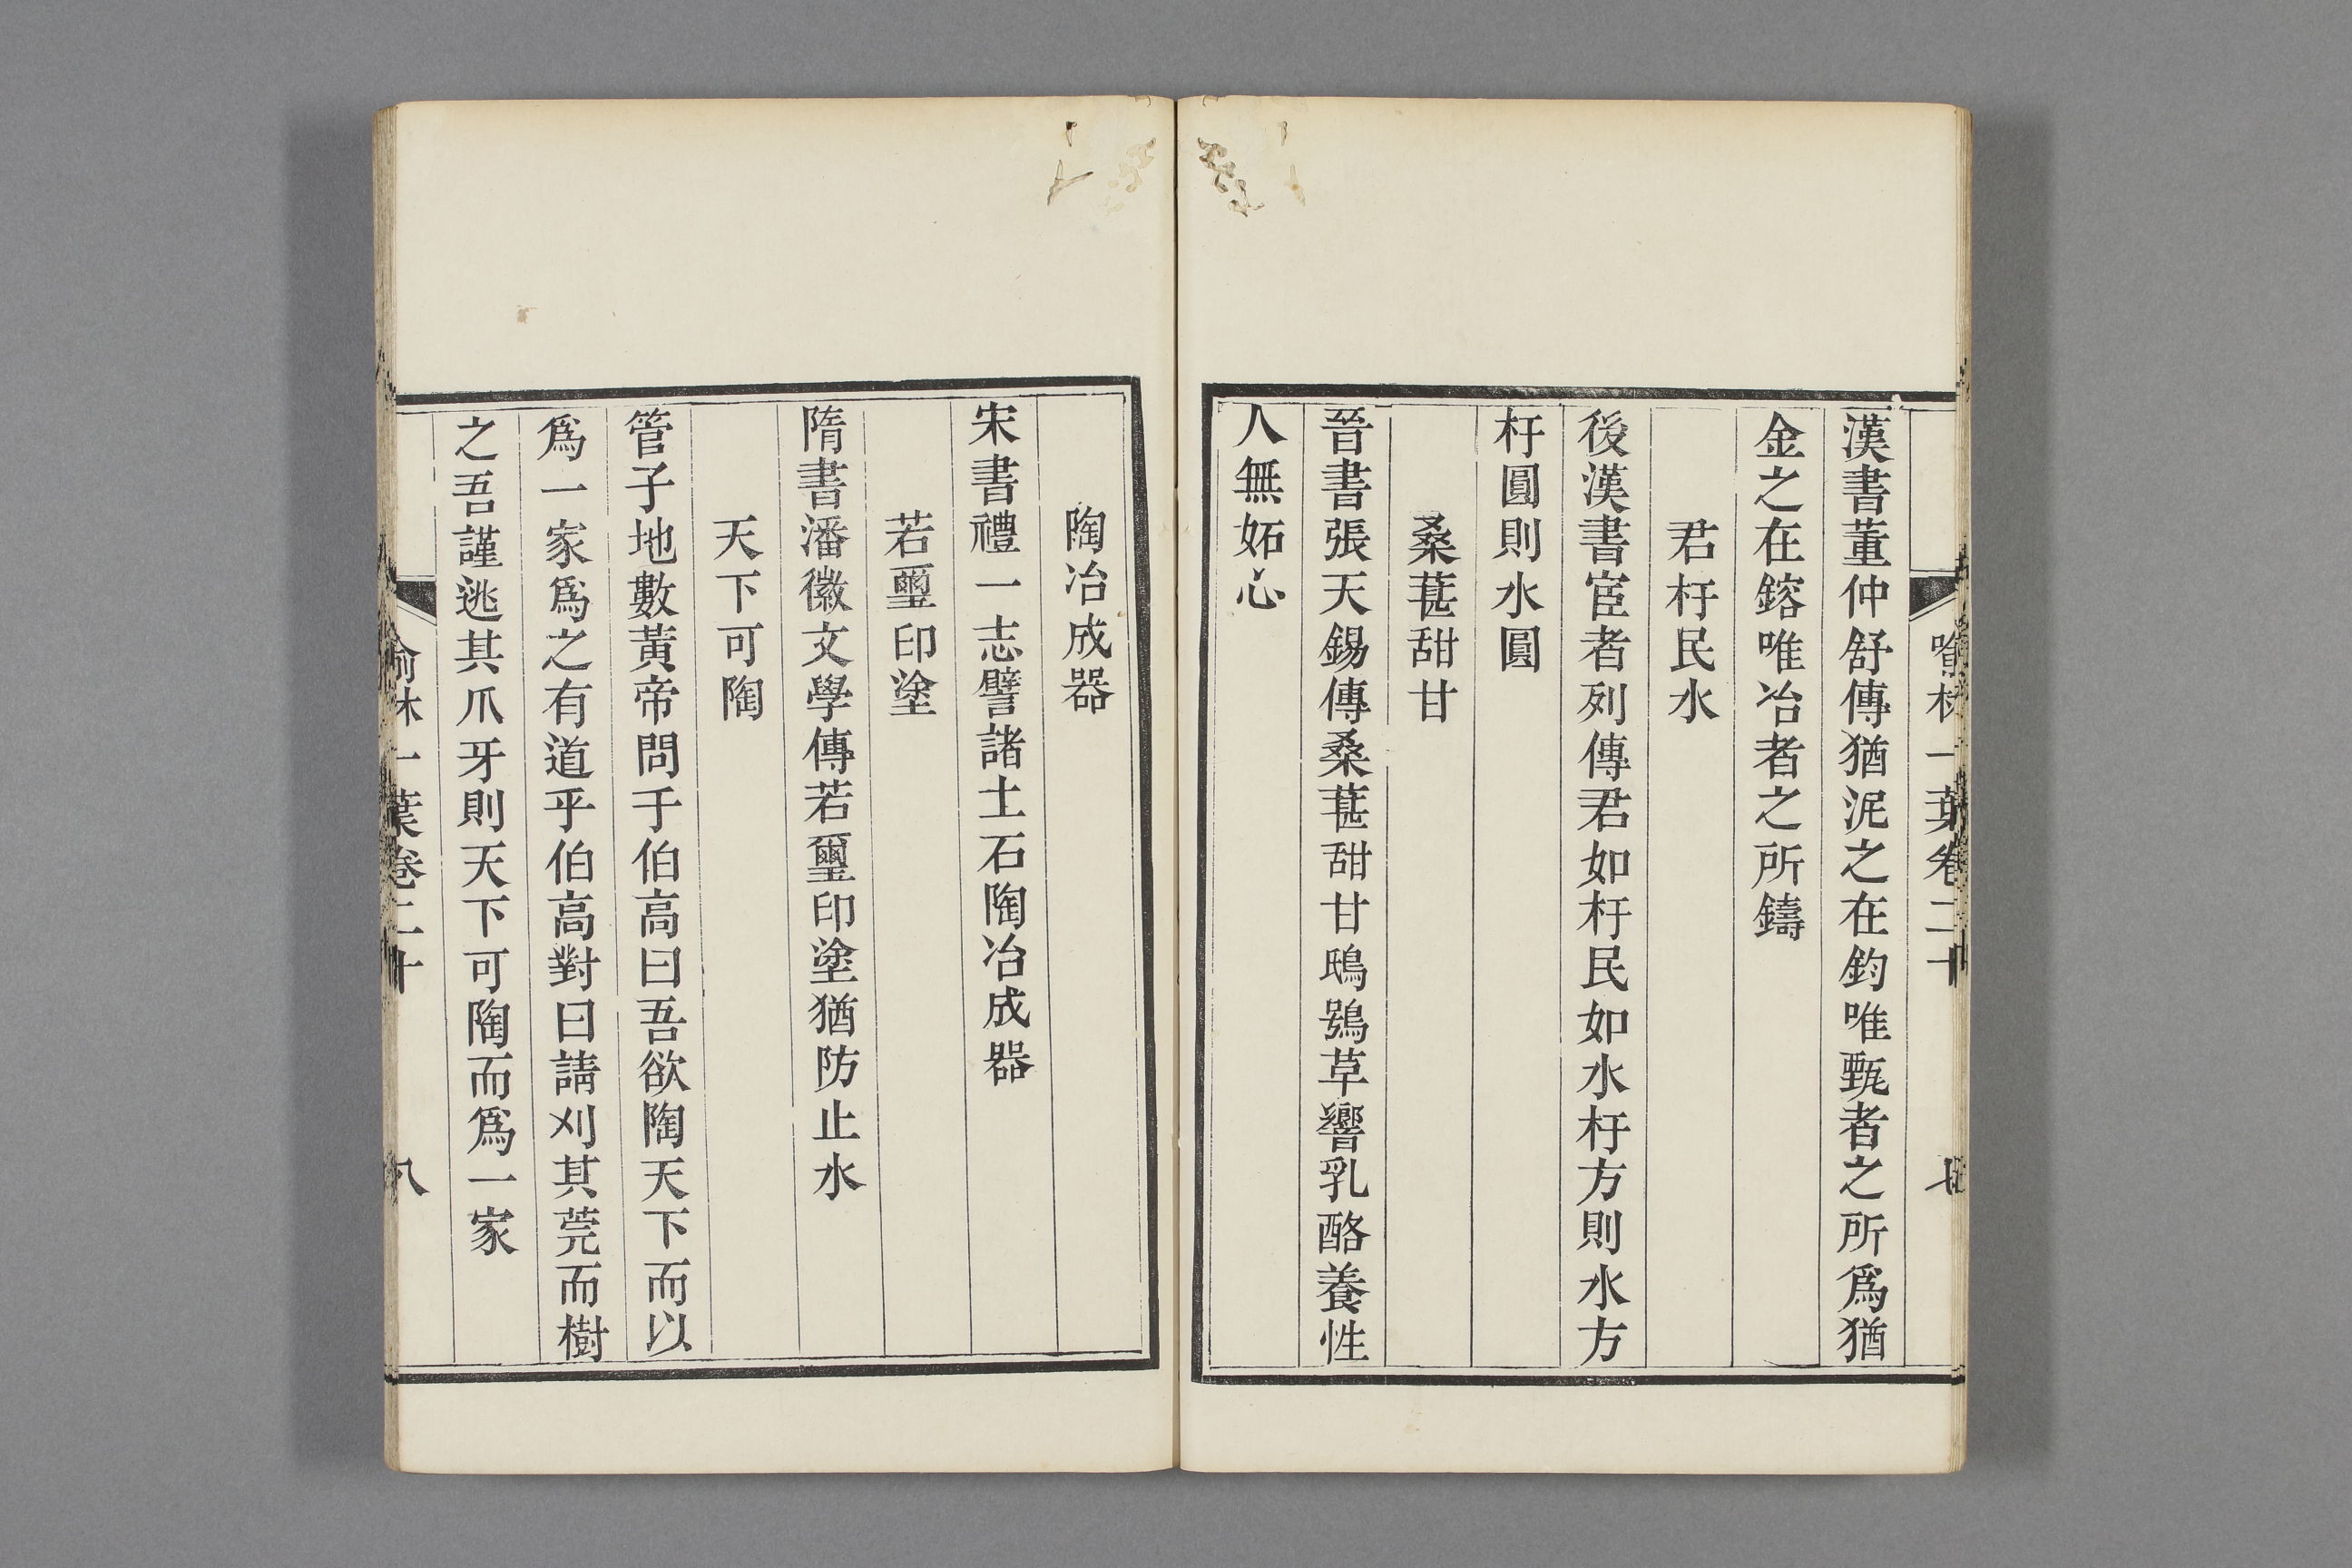 漢書董仲舒傳猶泥之在鈞唯甄者之所爲猶
金之在鎔唯冶者之所鑄
君杅民水
後漢書宦者列傳君如杅民如水杅方則水方
杅圓則水圓
桑葚甜甘
晉書張天錫傳桑葚甜甘鴟鴞草響乳酪養性
人無妬心
陶冶成器
宋書禮一志譬諸土石陶冶成器
若璽印塗
隋書潘徽文學傳若璽印塗猶防止水
天下可陶
管子地數黃帝問于伯高曰吾欲陶天下而以
爲一家爲之有道乎伯高對曰請刈其莞而樹
之吾謹逃其爪牙則天下可陶而爲一家
喻林一葉卷二十
八